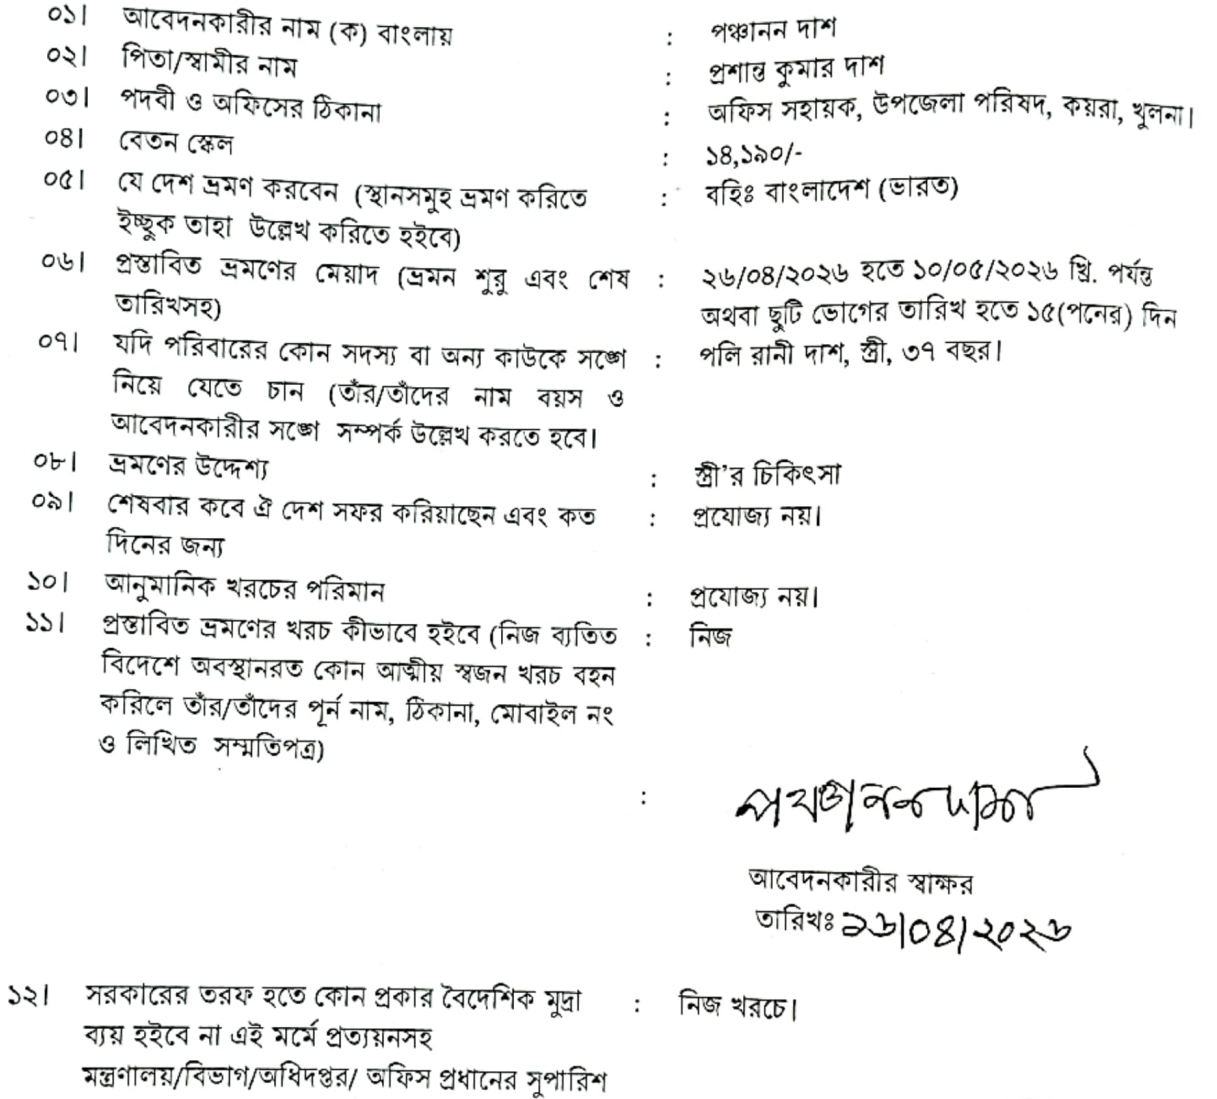 ০১। আবেদনকারীর নাম (ক) বাংলায় : পঞ্চানন দাশ
০২। পিতা/স্বামীর নাম : প্রশান্ত কুমার দাশ
০৩। পদবী ও অফিসের ঠিকানা : অফিস সহায়ক, উপজেলা পরিষদ, কয়রা, খুলনা।
০৪। বেতন স্কেল : ১৪,১৯০/-
০৫। যে দেশ ভ্রমণ করবেন (স্থানসমুহ ভ্রমণ করিতে : বহিঃ বাংলাদেশ (ভারত)
ইচ্ছুক তাহা উল্লেখ করিতে হইবে)
০৬। প্রস্তাবিত ভ্রমণের মেয়াদ (ভ্রমন শুরু এবং শেষ : ২৬/০৪/২০২৬ হতে ১০/০৫/২০২৬ খ্রি. পর্যন্ত
তারিখসহ) অথবা ছুটি ভোগের তারিখ হতে ১৫(পনের) দিন
০৭। যদি পরিবারের কোন সদস্য বা অন্য কাউকে সঙ্গে : পলি রানী দাশ, স্ত্রী, ৩৭ বছর।
নিয়ে যেতে চান (তাঁর/তাঁদের নাম বয়স ও
আবেদনকারীর সঙ্গে সম্পর্ক উল্লেখ করতে হবে।
০৮। ভ্রমণের উদ্দেশ্য : স্ত্রী'র চিকিৎসা
০৯। শেষবার কবে ঐ দেশ সফর করিয়াছেন এবং কত : প্রযোজ্য নয়।
দিনের জন্য
১০। আনুমানিক খরচের পরিমান : প্রযোজ্য নয়।
১১। প্রস্তাবিত ভ্রমণের খরচ কীভাবে হইবে (নিজ ব্যতিত : নিজ
বিদেশে অবস্থানরত কোন আত্মীয় স্বজন খরচ বহন
করিলে তাঁর/তাঁদের পূর্ন নাম, ঠিকানা, মোবাইল নং
ও লিখিত সম্মতিপত্র)
: পঞ্চানন দাশ
আবেদনকারীর স্বাক্ষর
তারিখঃ ১৬/০৪/২০২৬
১২। সরকারের তরফ হতে কোন প্রকার বৈদেশিক মুদ্রা : নিজ খরচে।
ব্যয় হইবে না এই মর্মে প্রত্যয়নসহ
মন্ত্রণালয়/বিভাগ/অধিদপ্তর/ অফিস প্রধানের সুপারিশ